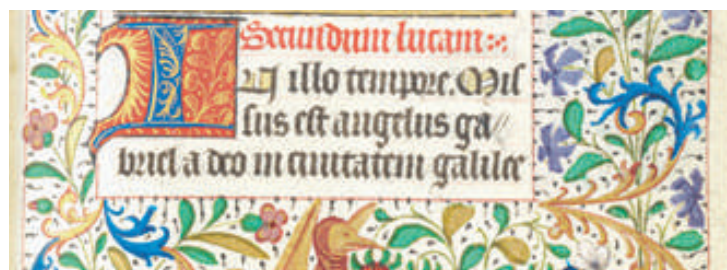 Secundum lucam
In illo tempore. Mis
sus est angelus ga
briel a deo in ciuitatem galilee